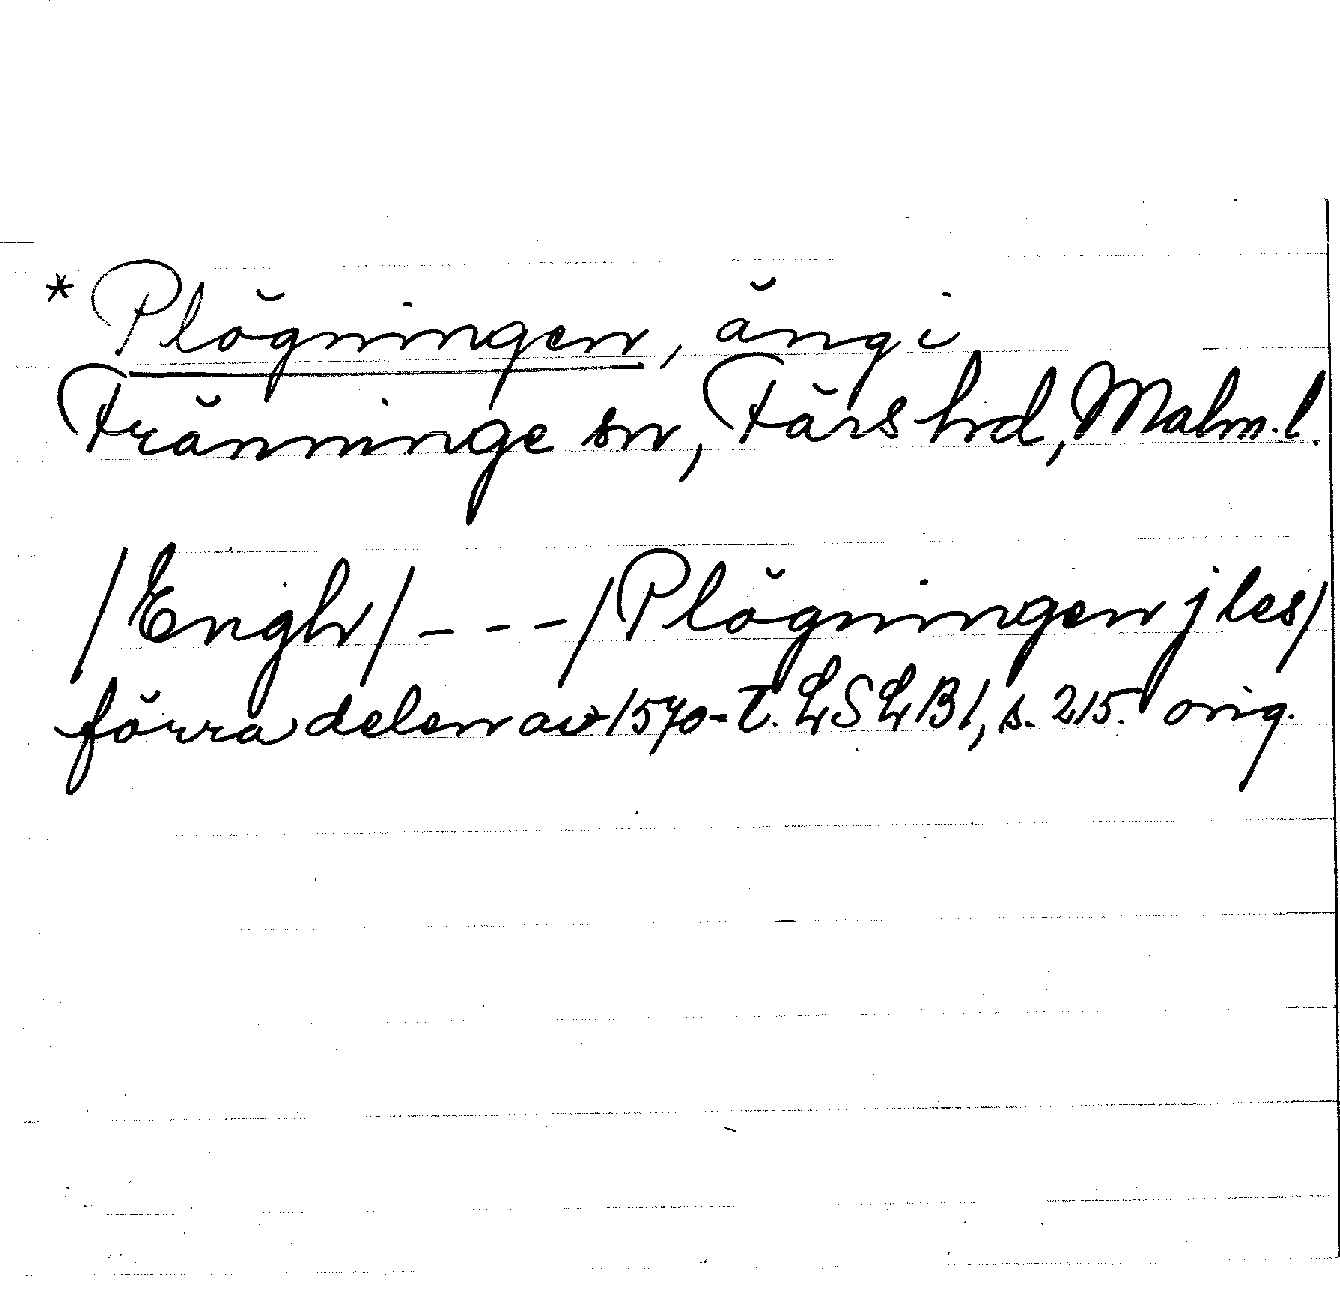 * Plögningen, äng i
Tränninge sn, Färs hd, Malm. l.
/Engh/ - - - /Plögningen j les/
förra delen av 1570-t. LSLB1, s. 215. orig.